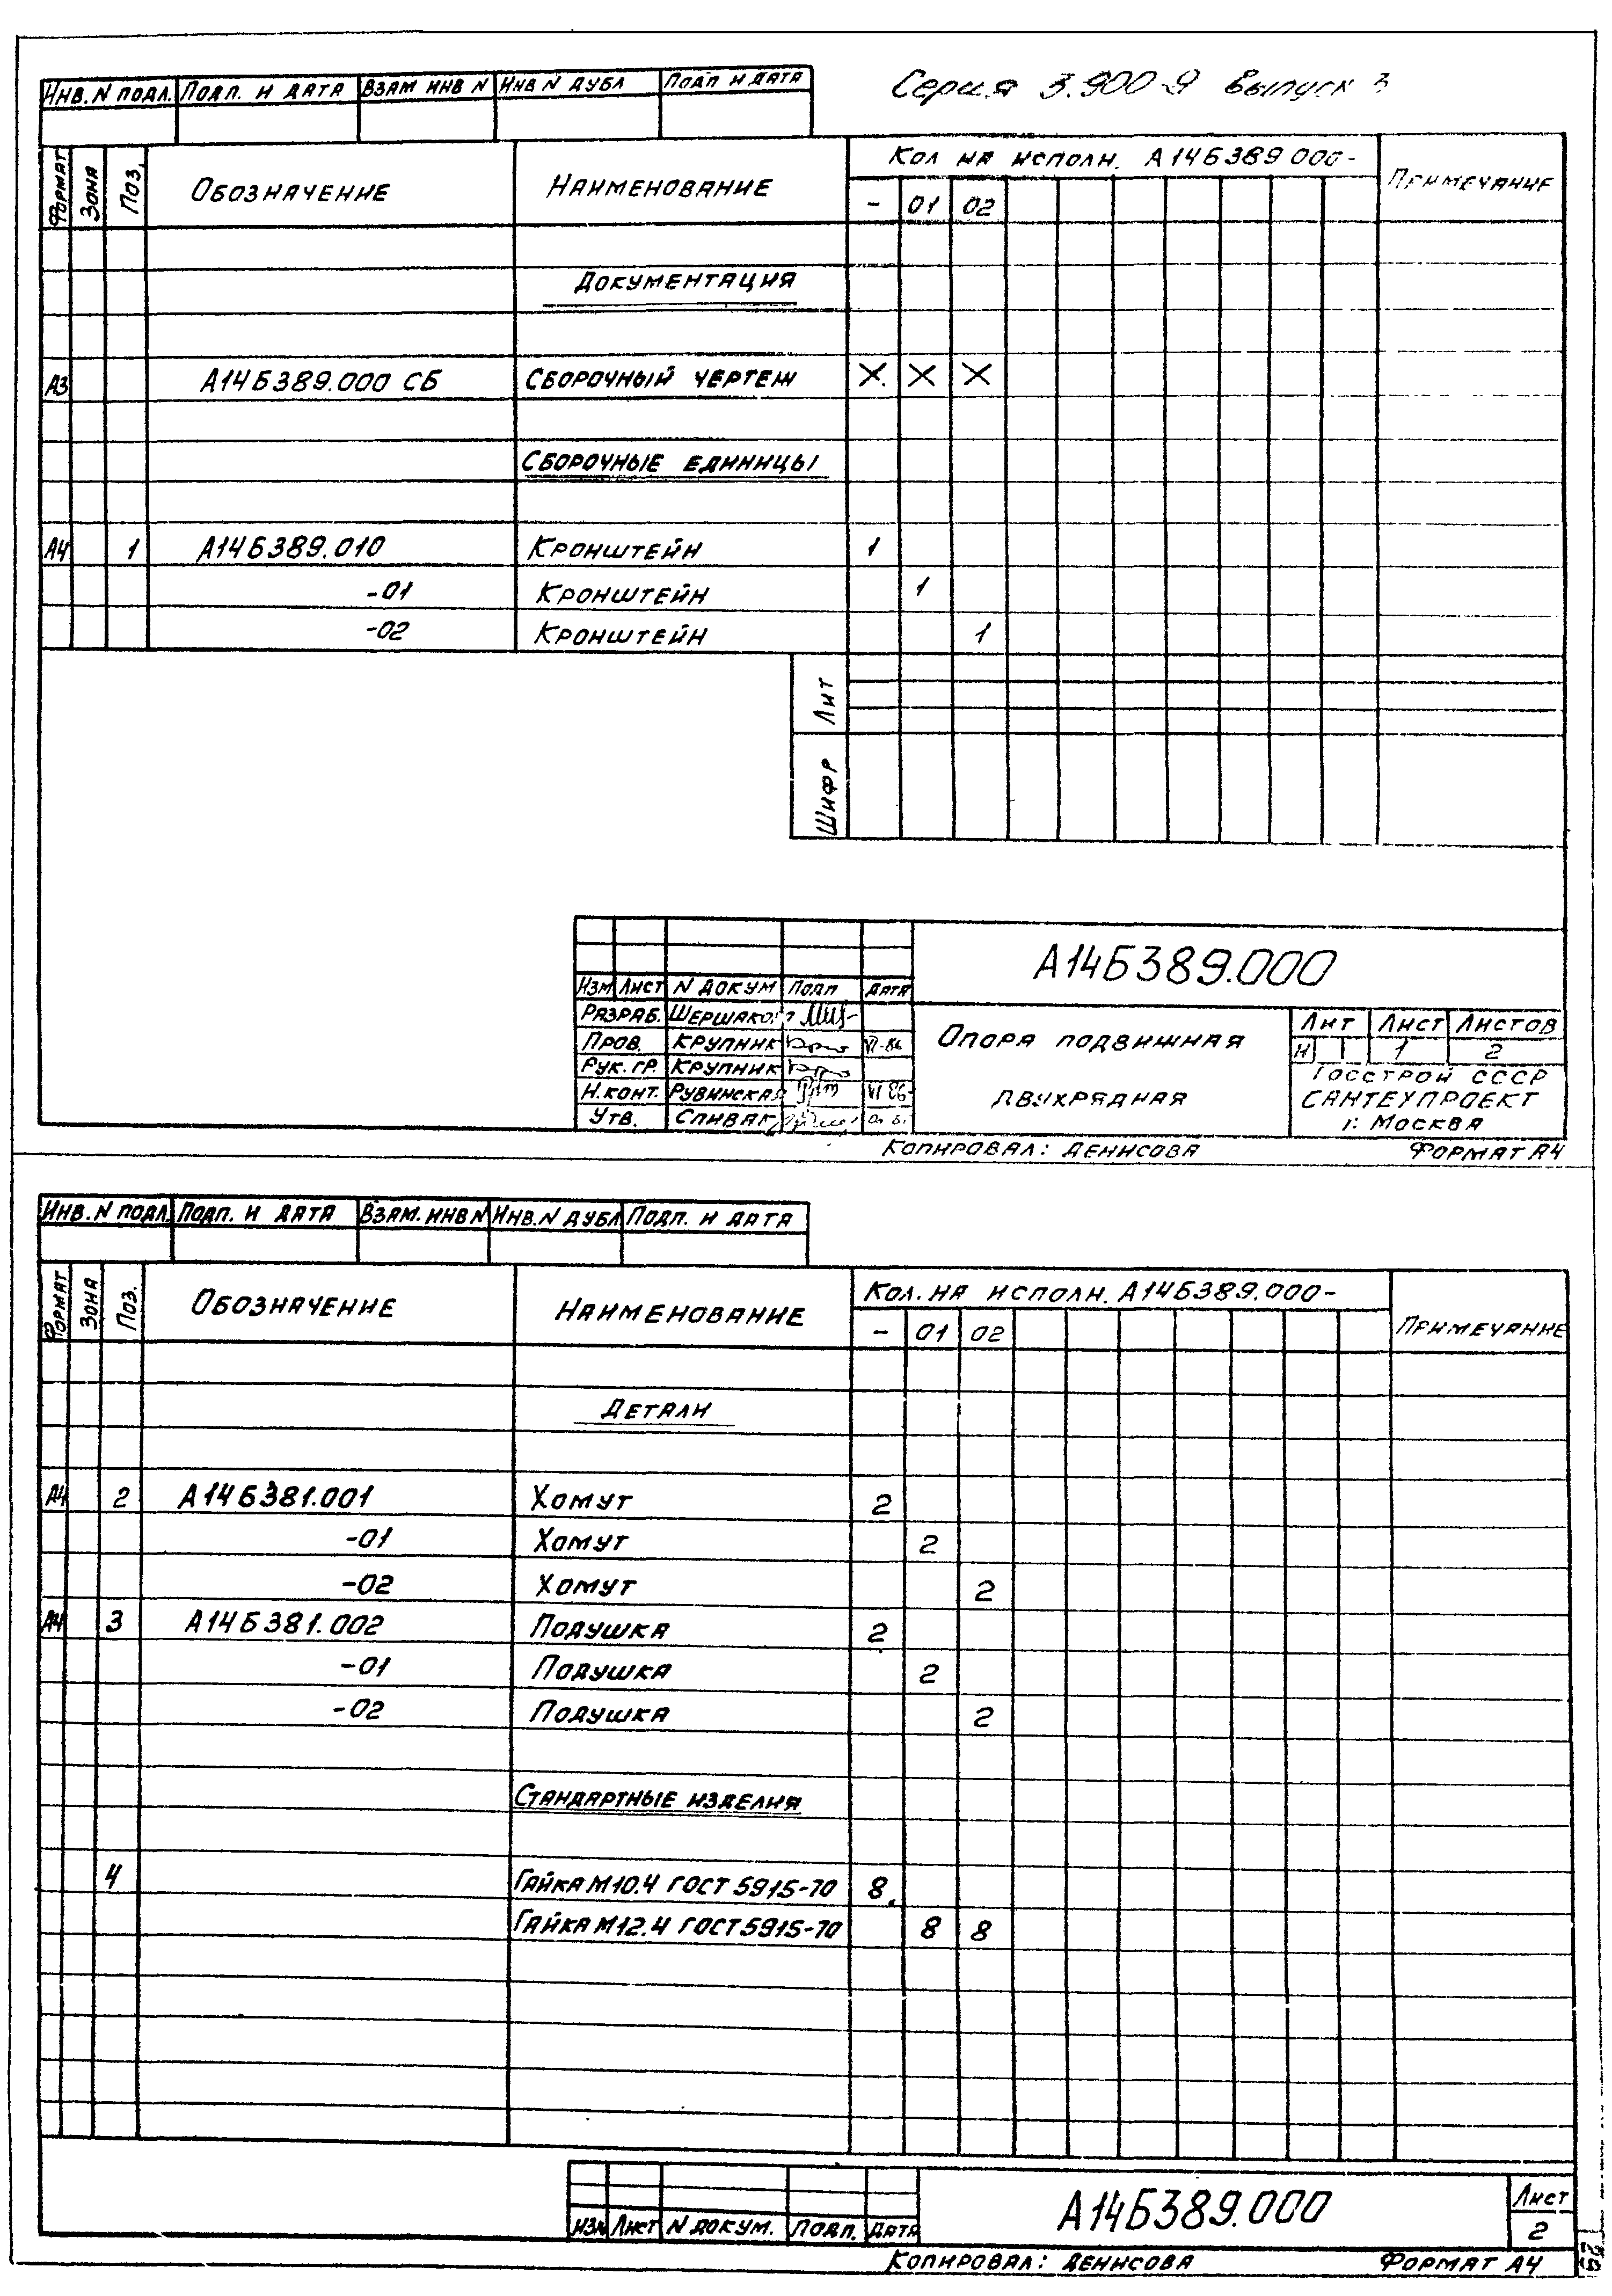 Серия 3.900-9 Выпуск 3
Инв. N подл. Подп. и дата Взам инв N Инв N дубл Подп и дата
Формат Зона Поз. Обозначение Наименование Кол на исполн. А14Б389.000- Примечание
- 01 02
Документация
А3 А14Б389.000 СБ Сборочный чертеж X. X X
Сборочные единицы
А4 1 А14Б389.010 Кронштейн 1
-01 Кронштейн 1
-02 Кронштейн 1
Лит
Шифр
А14Б389.000
Изм Лист N докум Подп Дата
Разраб.
Пров. Крупник VI-86
Рук. гр. Крупник
Н.конт. Рувинская VI 86
Утв. Спивак
Опора подвижная
двухрядная
Лит Лист Листов
И 1 2
Госстрой СССР
Сантехпроект
г. Москва
Копировал: Денисова Формат А4
Инв. N подл. Подп. и дата Взам. инв N Инв. N дубл Подп. и дата
Формат Зона Поз. Обозначение Наименование Кол. на исполн. А14Б389.000- Примечание
- 01 02
Детали
А4 2 А14Б381.001 Хомут 2
-01 Хомут 2
-02 Хомут 2
А4 3 А14Б381.002 Подушка 2
-01 Подушка 2
-02 Подушка 2
Стандартные изделия
4 Гайка М10.4 ГОСТ 5915-70 8.
Гайка М12.4 ГОСТ 5915-70 8 8
А14Б389.000
Лист
2
Изм Лист N докум. Подп. Дата
Копировал: Денисова Формат А4